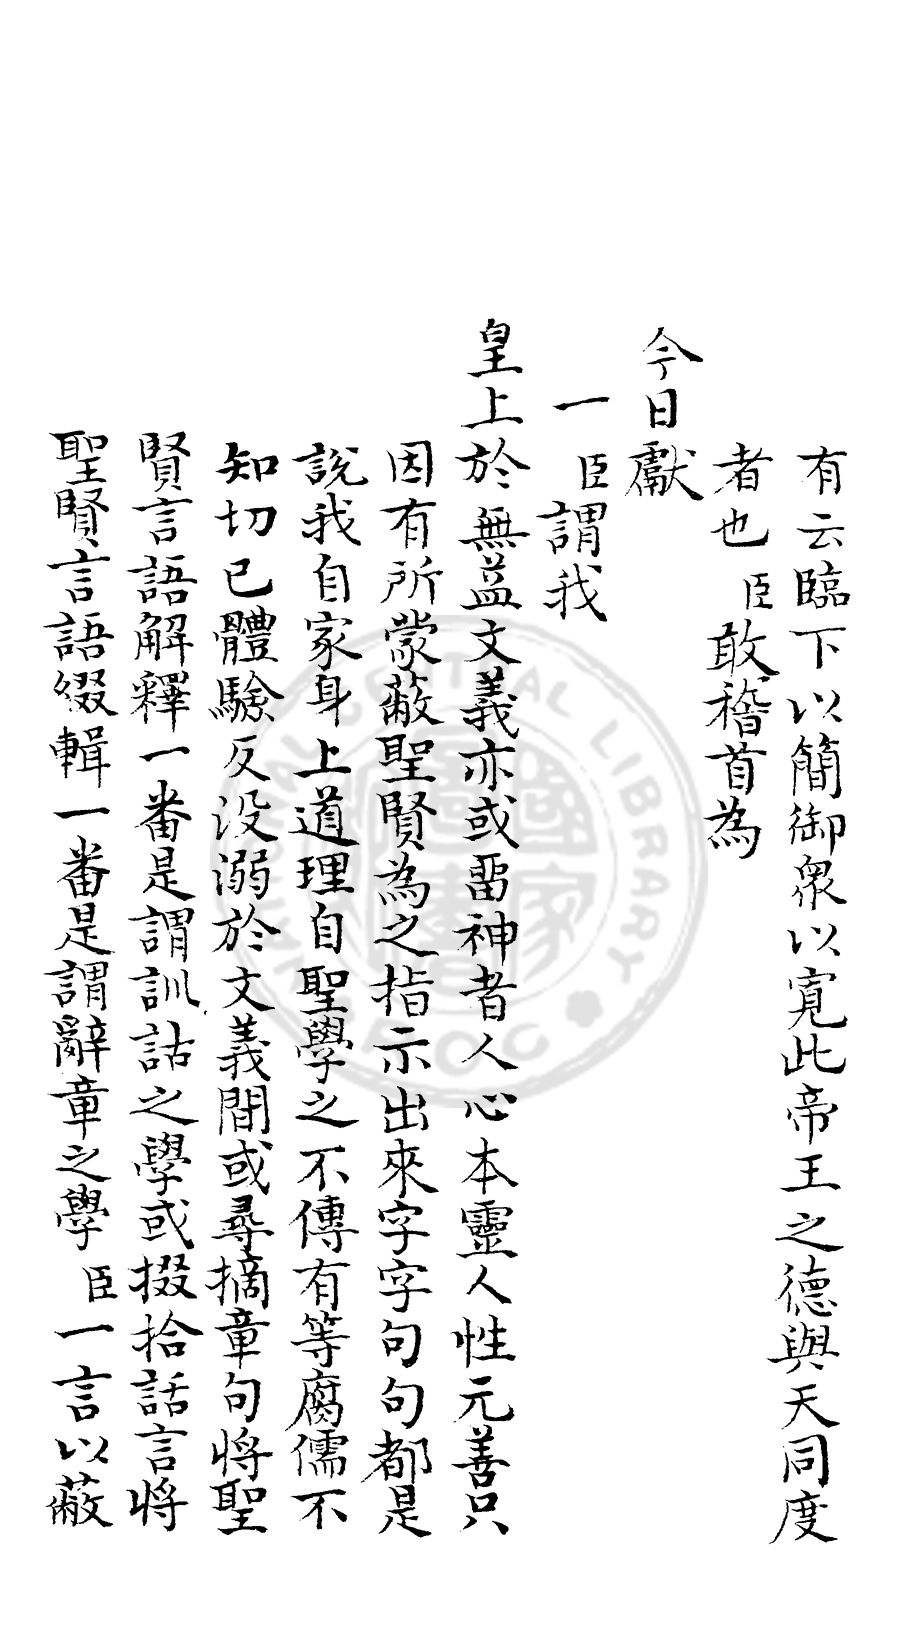 有云臨下以簡御衆以寛此帝王之德與天同度
者也臣敢稽首為
今日獻
一臣謂我
皇上於無益文義亦或留神者人心本靈人性元善只
因有所蒙蔽聖賢為之指示出來字字句句都是
說我自家身上道理自聖學之不傳有等腐儒不
知切已體驗反没溺於文義間或尋摘章句將聖
賢言語解釋一番是謂訓詁之學或掇拾話言將
聖賢言語綴輯一番是謂辭章之學臣一言以蔽
NATIONAL CENTRAL LIBRARY
國家圖書